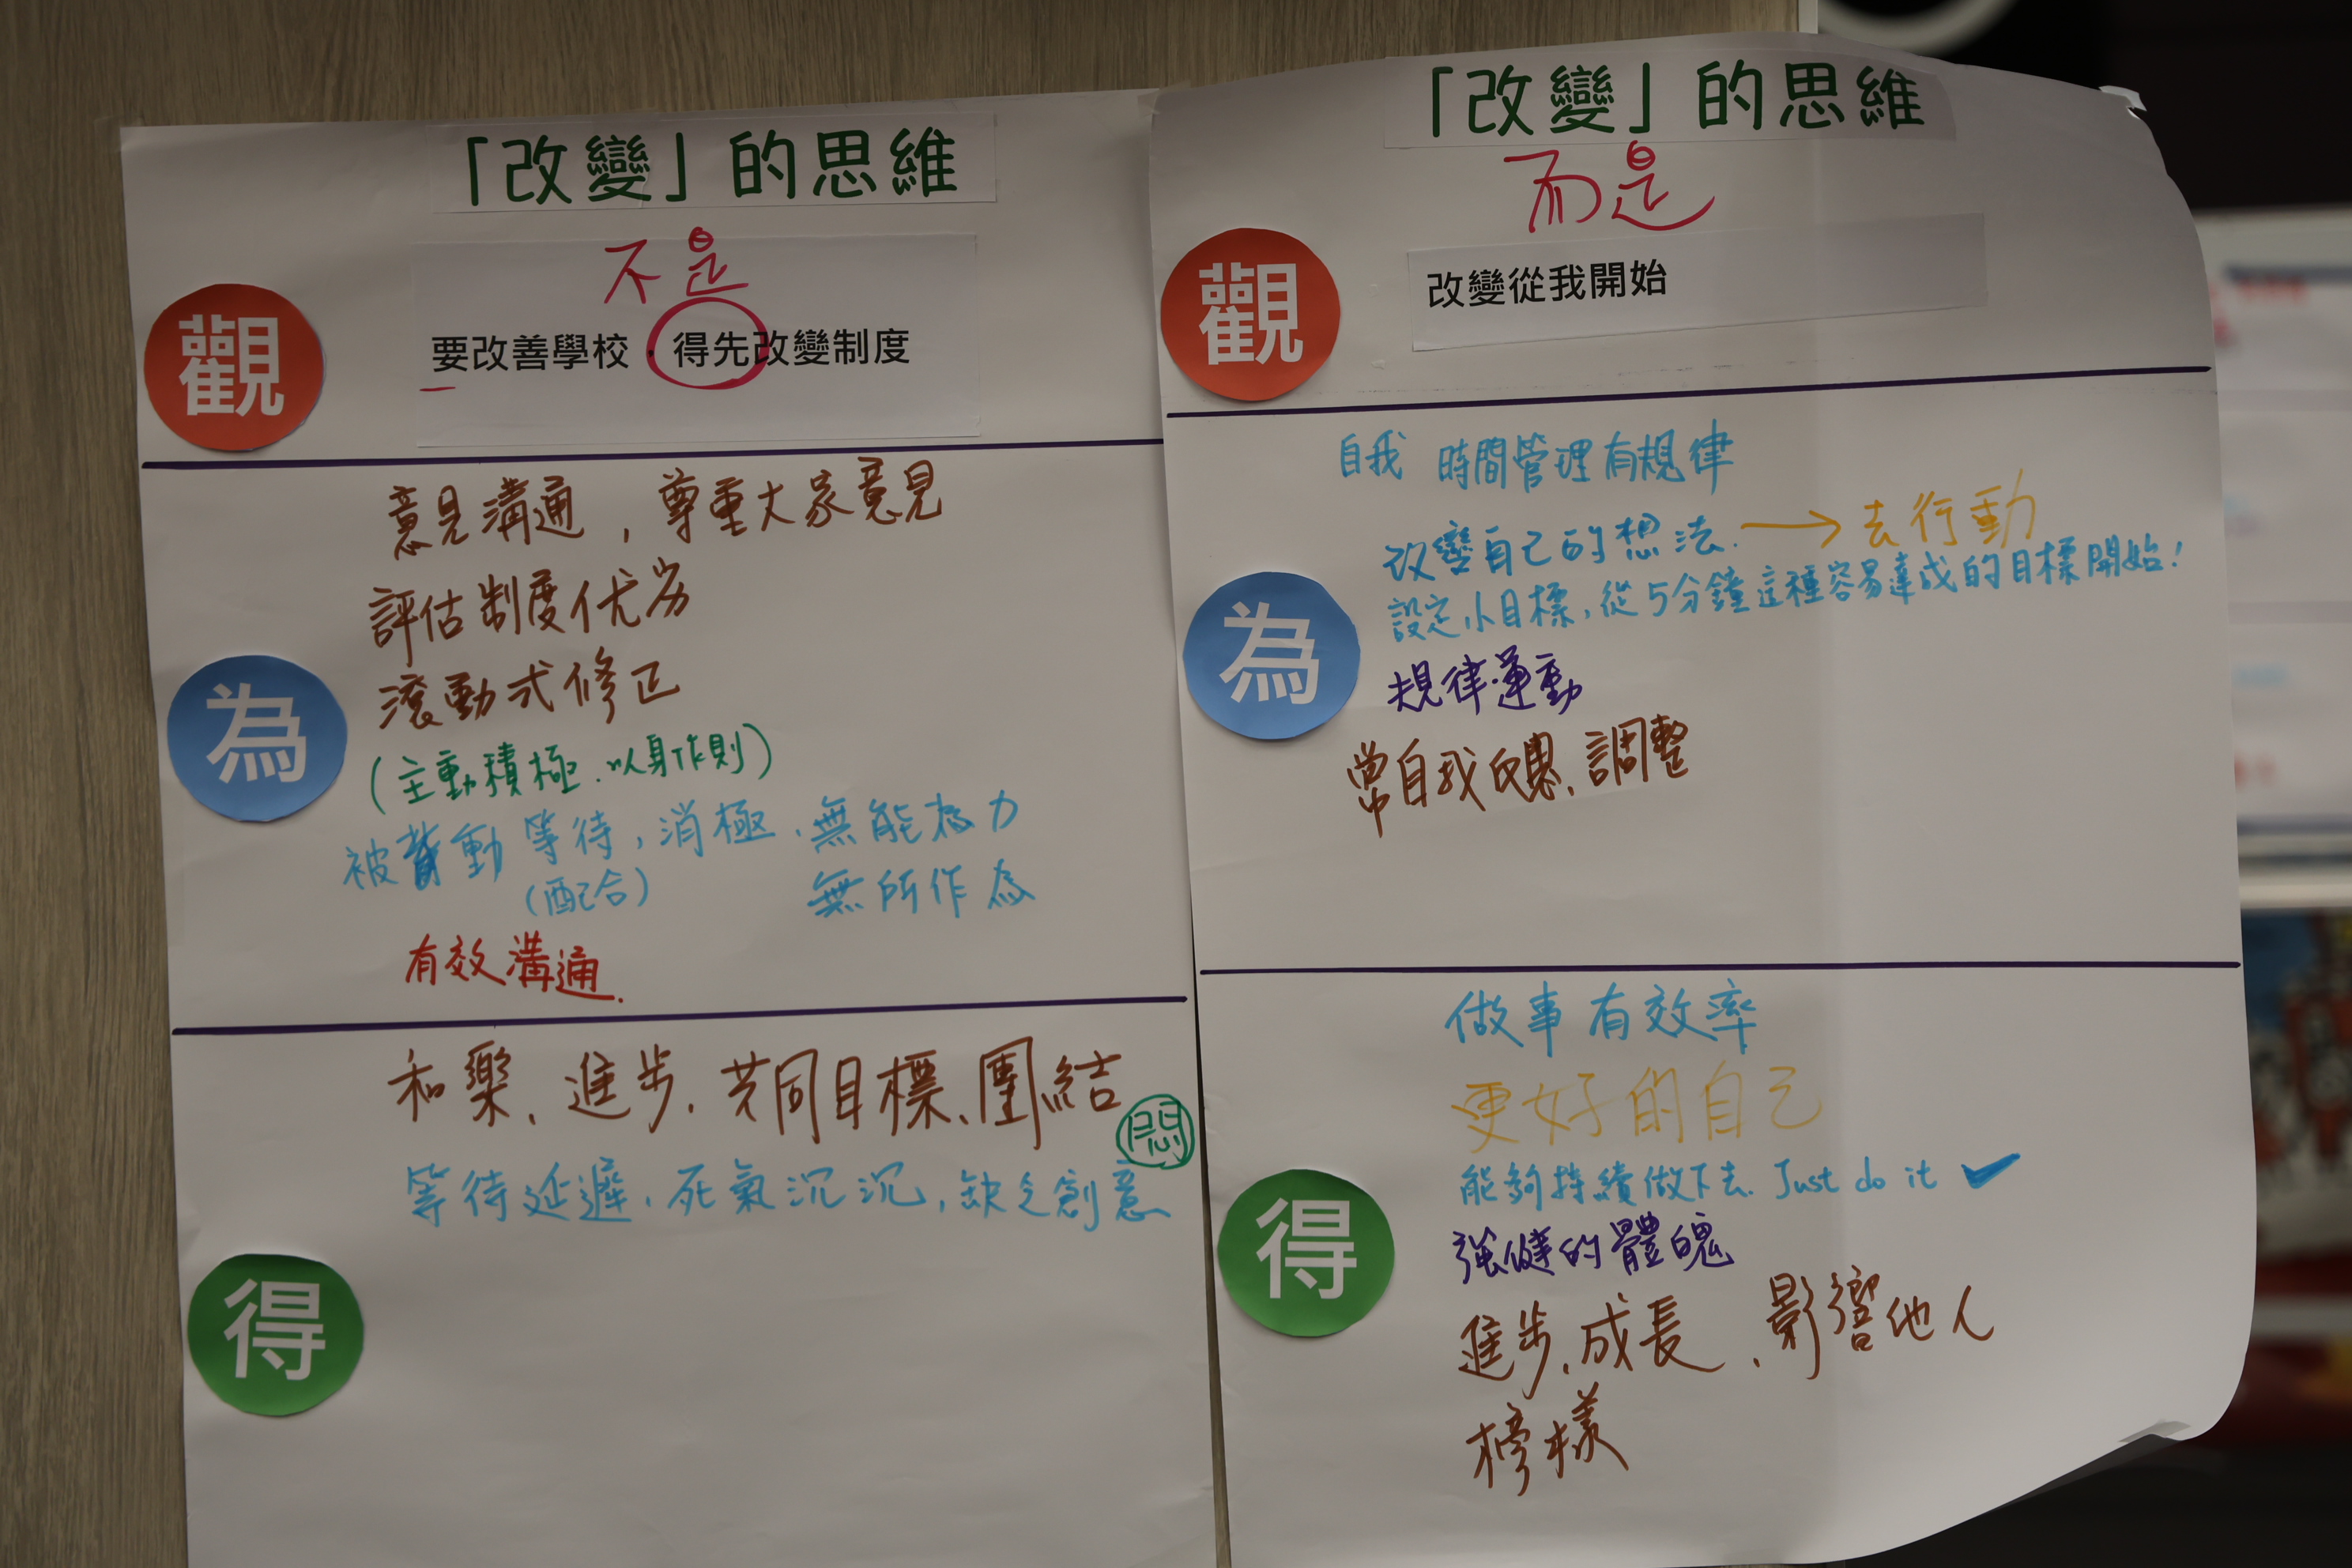 「改變」的思維
不是
觀
要改善學校，得先改變制度
意見溝通，尊重大家意見
評估制度优劣
滾動式修正
為
(主動積極．以身作則)
被動等待，消極．無能為力
(配合)
無所作為
有效溝通.
和樂、進步．共同目標、團結
悶
等待延遲．死氣沉沉，缺乏創意
得
「改變」的思維
而是
觀
改變從我開始
自我 時間管理有規律
改變自己的想法. → 去行動
設定小目標，從5分鐘這種容易達成的目標開始！
為
規律運動
常自我反思、調整
做事有效率
更好的自己
能夠持續做下去. Just do it ✓
得
強健的體魄
進步．成長、影響他人
榜樣